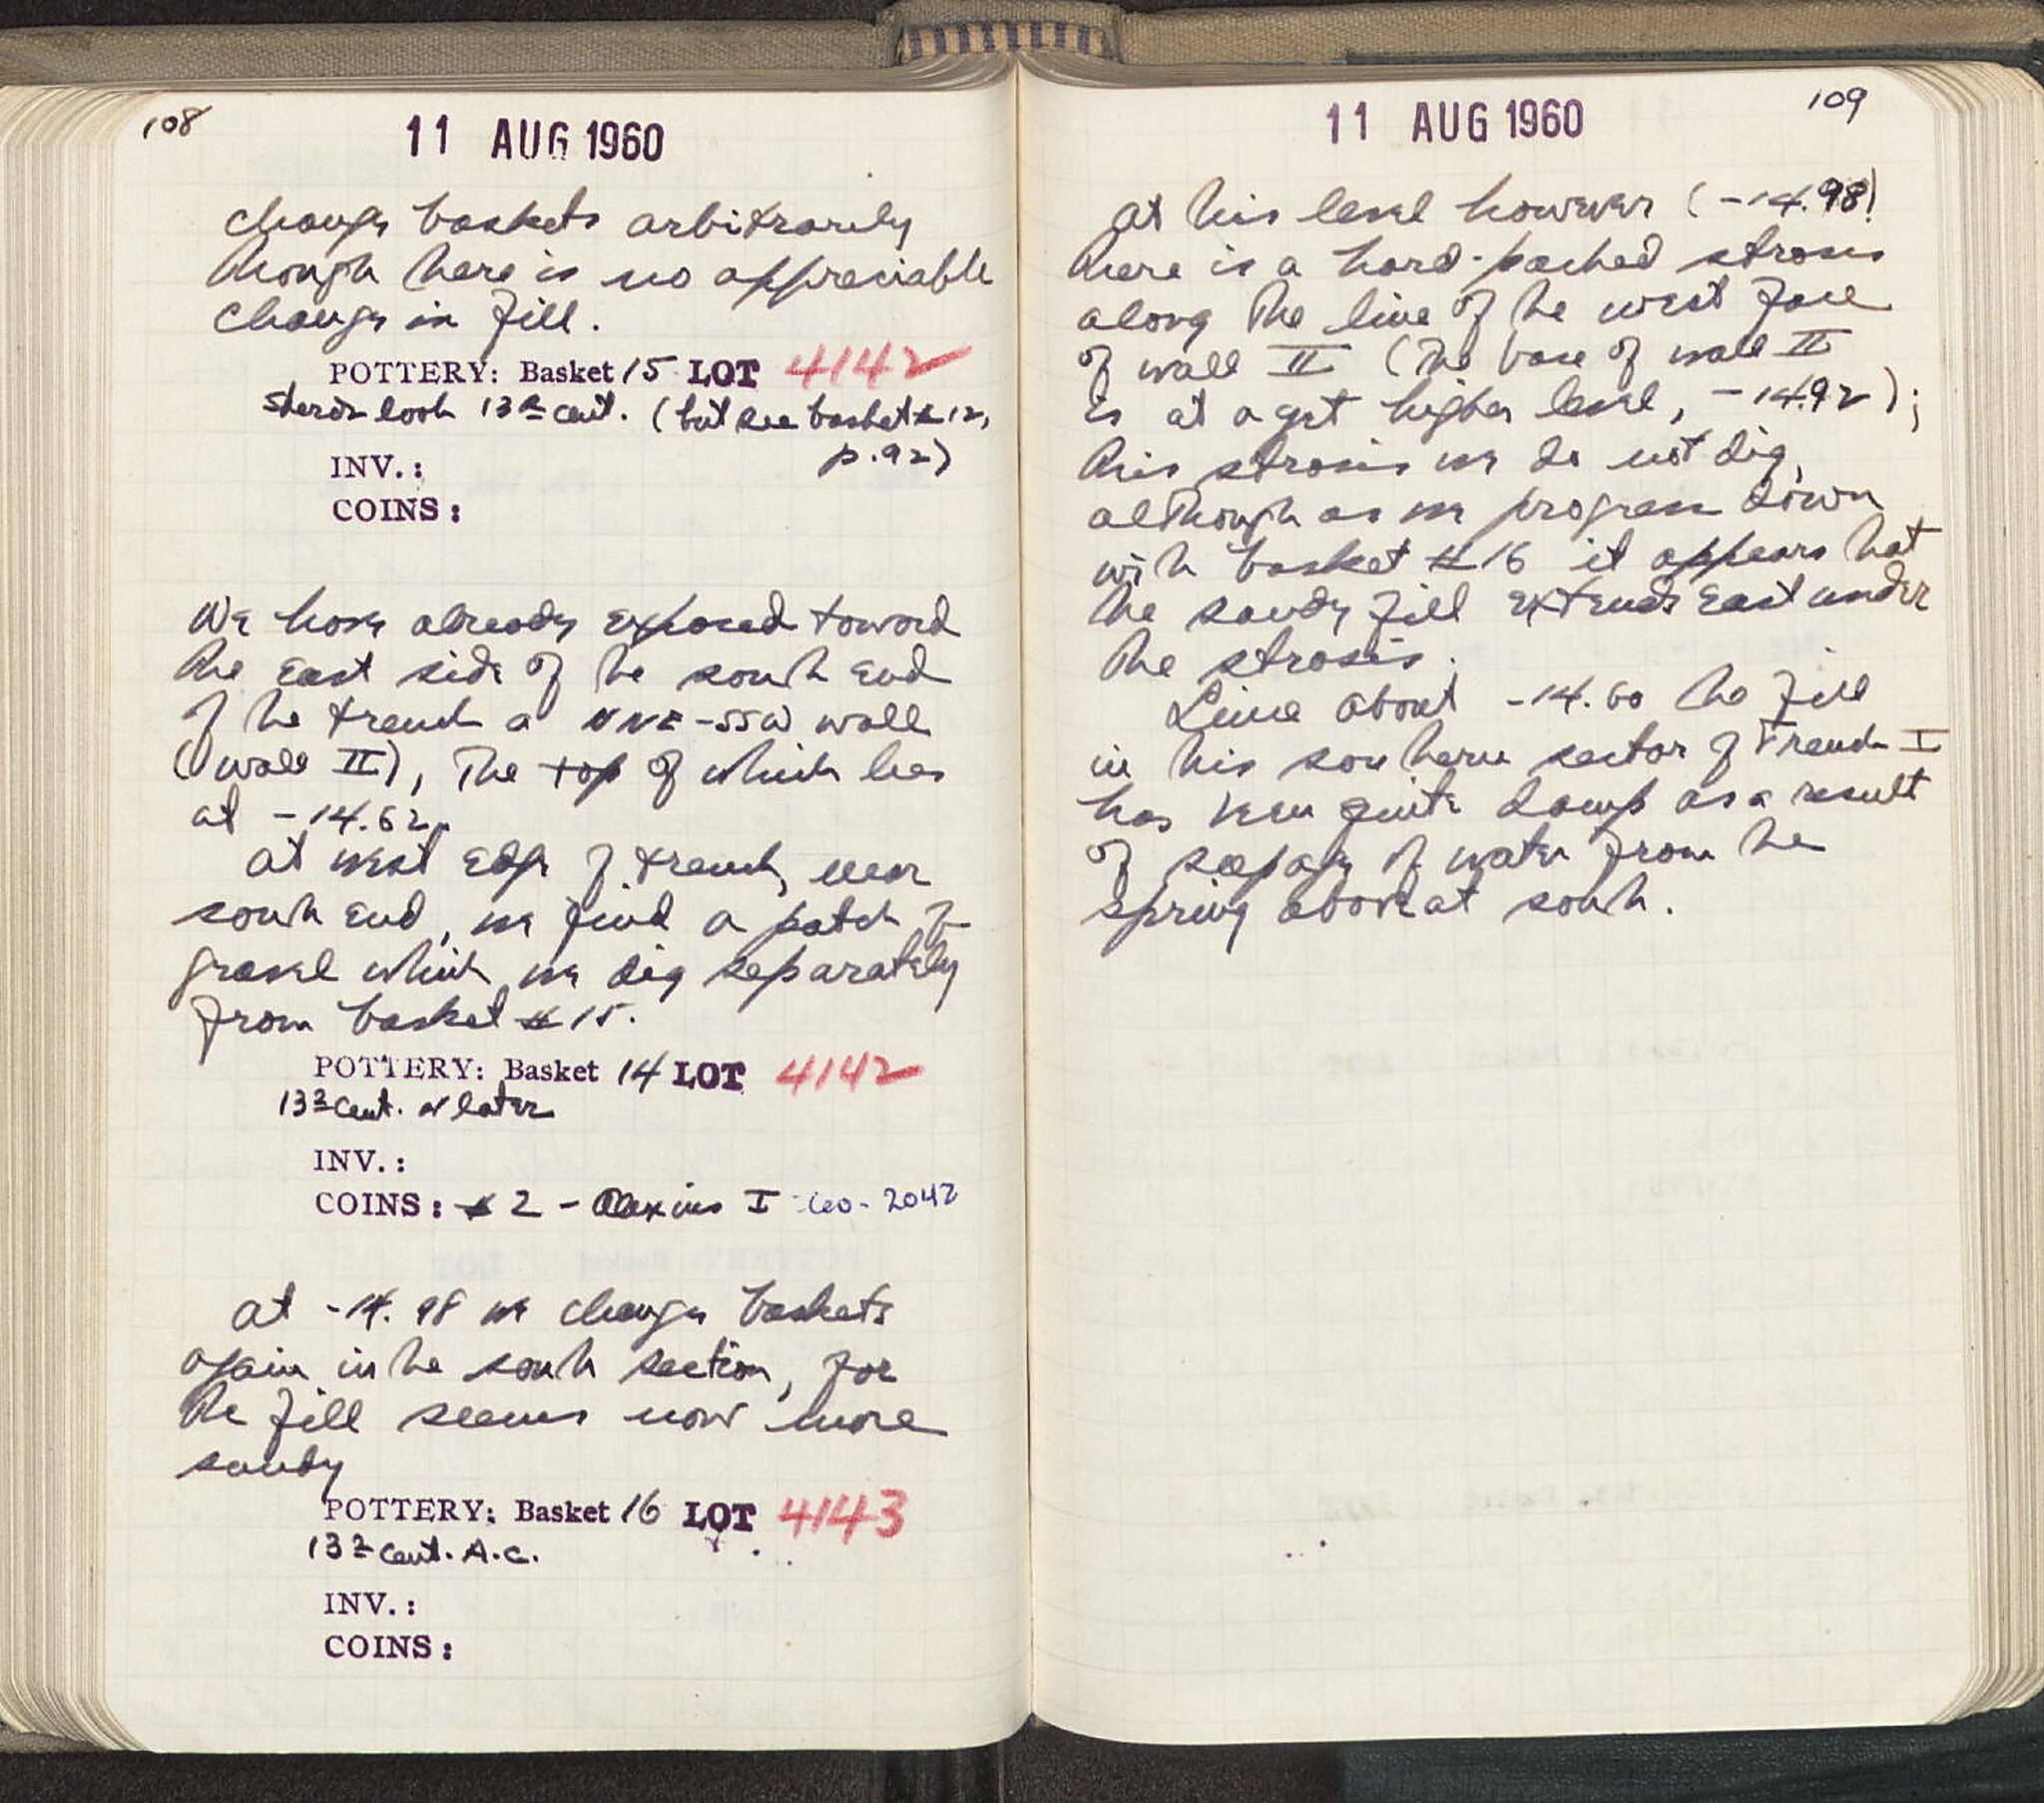 108
11 AUG 1960
change baskets arbitrarily
though there is no appreciable
change in fill.
POTTERY: Basket 15 LOT 4142
sherds look 13th cent. (but see basket # 12,
p. 92)
INV.:
COINS:
We have already exposed toward
the east side of the south end
of the trench a NNE-SSW wall
(wall II), the top of which lies
at -14.62.
At west edge of trench, near
south end, we find a patch of
gravel which we dig separately
from basket # 15.
POTTERY: Basket 14 LOT 4142
13th cent. or later
INV.:
COINS: # 2 - Alexius I 60-2042
At -14.98 we change baskets
again in the south section, for
the fill seems now more
sandy
POTTERY: Basket 16 LOT 4143
13th cent. A.C.
INV.:
COINS:
109
11 AUG 1960
At this level however (-14.98)
there is a hard-packed strosis
along the line of the west face
of wall II (the base of wall II
is at a higher level, -14.92);
this strosis we do not dig,
although as we progress down
with basket # 16 it appears that
the sandy fill extends east under
the strosis.
Since about -14.60 the fill
in this southern sector of Trench I
has been quite damp as a result
of seepage of water from the
spring above at south.